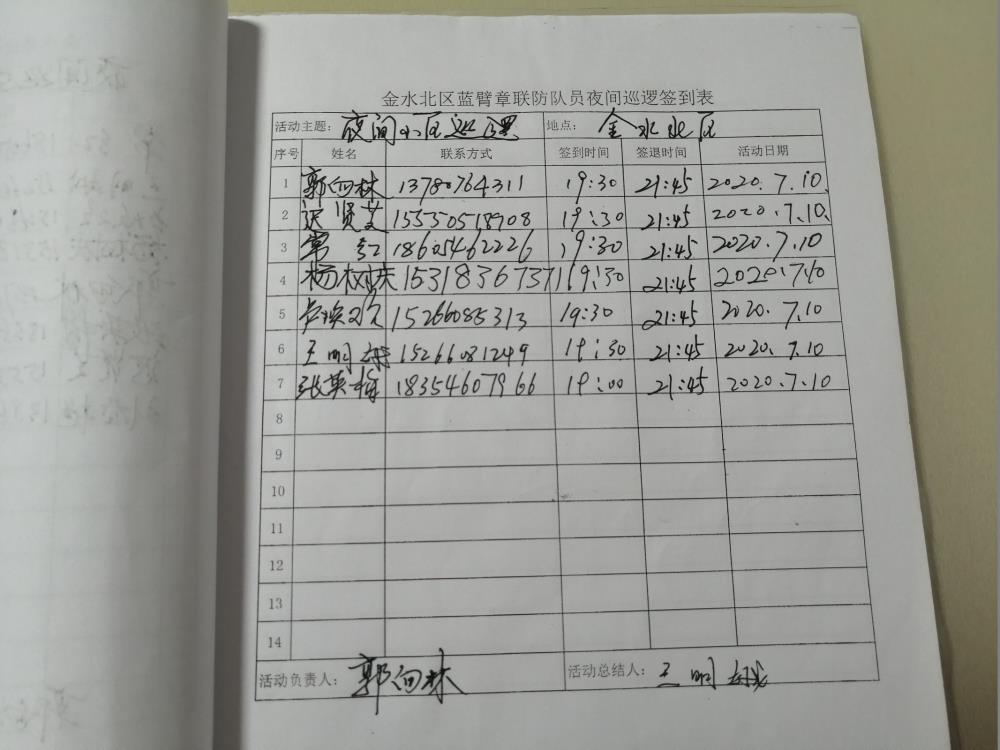 金水北区蓝臂章联防队员夜间巡逻签到表
活动主题: 夜间小区巡逻 地点: 金水北区
序号 姓名 联系方式 签到时间 签退时间 活动日期
1 郭向林 13780764311 19:30 21:45 2020.7.10
2 张贤芝 15530518908 19:30 21:45 2020.7.10
3 常红 18605462226 19:30 21:45 2020.7.10
4 杨树庆 15318367371 19:30 21:45 2020.7.10
5 15266085313 19:30 21:45 2020.7.10
6 王明 15266081249 19:30 21:45 2020.7.10
7 张英梅 18354607966 19:00 21:45 2020.7.10
8
9
10
11
12
13
14
活动负责人: 郭向林 活动总结人: 王明